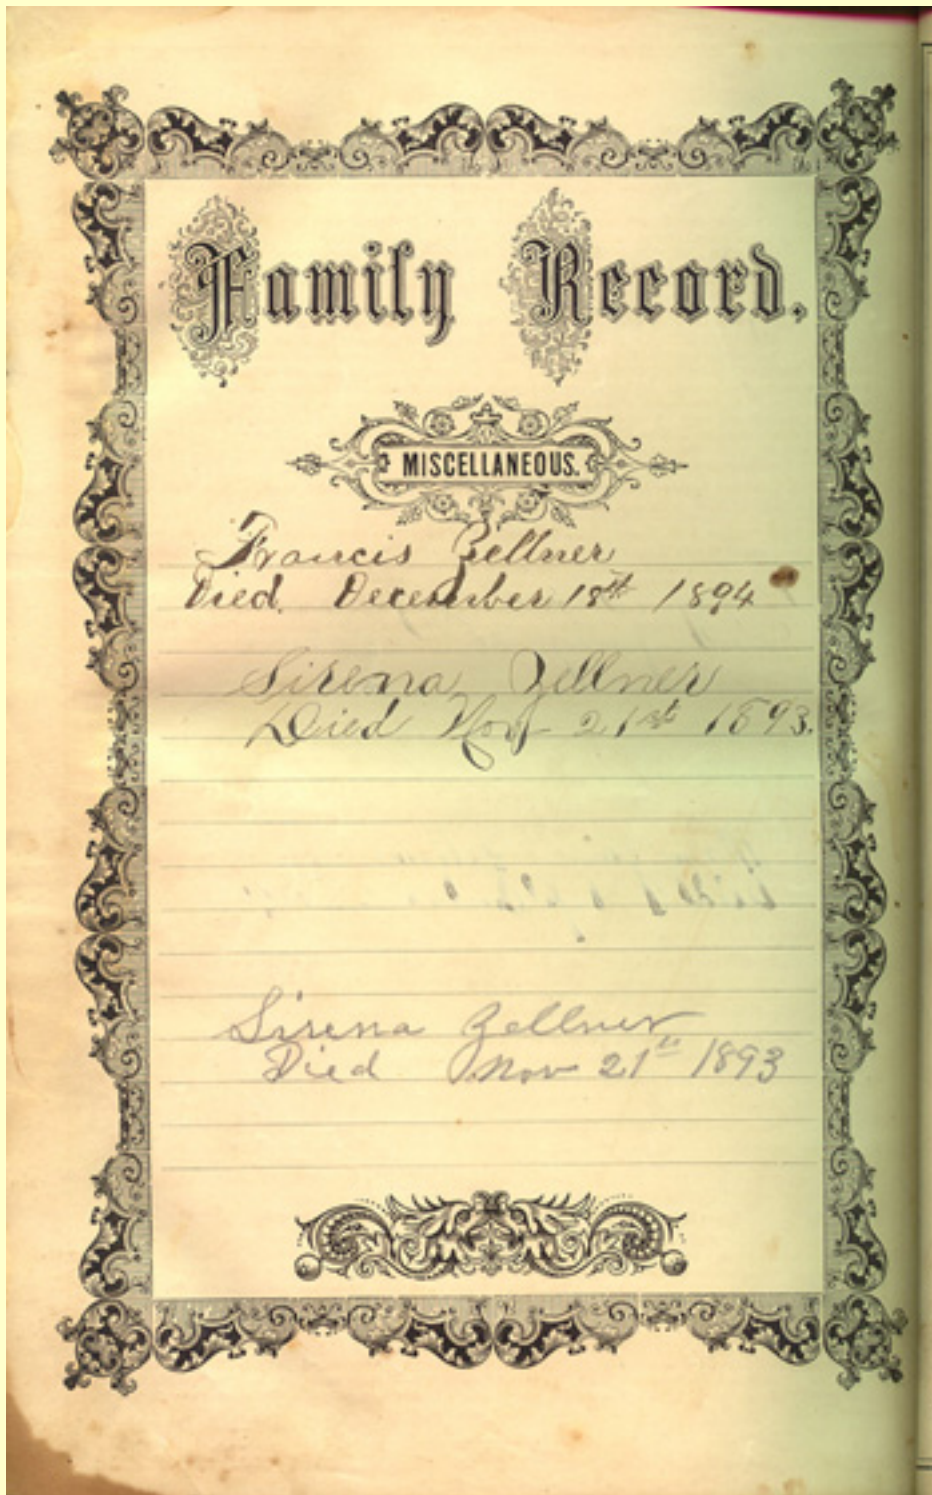 Family Record.
MISCELLANEOUS.
Francis Zellner
Died. December 18th 1894
Sirena Zellner
Died Nov 21st 1893.
Sirena Zellner
Died Nov 21st 1893